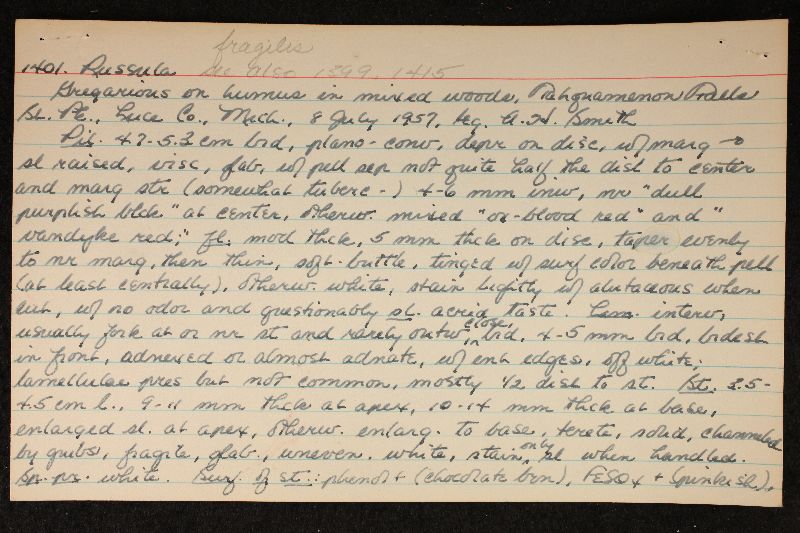 fragilis
1401. Russula see also 1399, 1415
Gregarious on humus in mixed woods, Tahquamenon Falls
St. Pk., Luce Co., Mich., 8 July 1957, leg. A. H. Smith
Pil. 4.7-5.3 cm brd, plano-conv, depr on disc, w/ marg →
sl raised, visc, glab, w/ pell sep not quite half the dist to center
and marg str (somewhat tuberc-) 4-6 mm inw, nr "dull
purplish blck" at center, otherw. mixed "ox-blood red" and "
vandyke red;" fl. mod thick, 5 mm thick on disc, taper evenly
to nr marg, then thin, soft-brittle, tinged w/ surf color beneath pell
(at least centrally), otherw. white, stain lightly w/ alutaceous when
cut, w/ no odor and questionably sl. acrid taste. Lam. interv,
usually fork at or nr st and rarely outw. close, brd, 4-5 mm brd, brdest
in front, adnexed or almost adnate, w/ ent edges, off white;
lamellulae pres but not common, mostly 1/2 dist to st. St. 3.5-
4.5 cm l., 9-11 mm thick at apex, 10-14 mm thick at base,
enlarged sl. at apex, otherw. enlarg. to base, terete, solid, channeled
by grubs, fragile, glab., uneven. white, stain only sl when handled.
Sp. pr. white. Surf. of st.: phenol + (chocolate brn), FeSO4 + (pinkish).